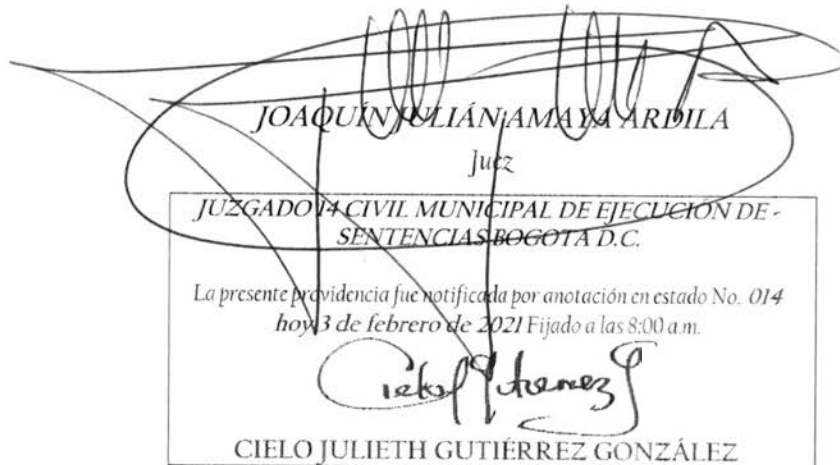 JOAQUÍN JULIÁN AMAYA ARDILA
Juez
JUZGADO 14 CIVIL MUNICIPAL DE EJECUCION DE -
SENTENCIAS BOGOTA D.C.
La presente providencia fue notificada por anotación en estado No. 014
hoy 3 de febrero de 2021 Fijado a las 8:00 a.m.
Cielo Gutierrez G
CIELO JULIETH GUTIÉRREZ GONZÁLEZ